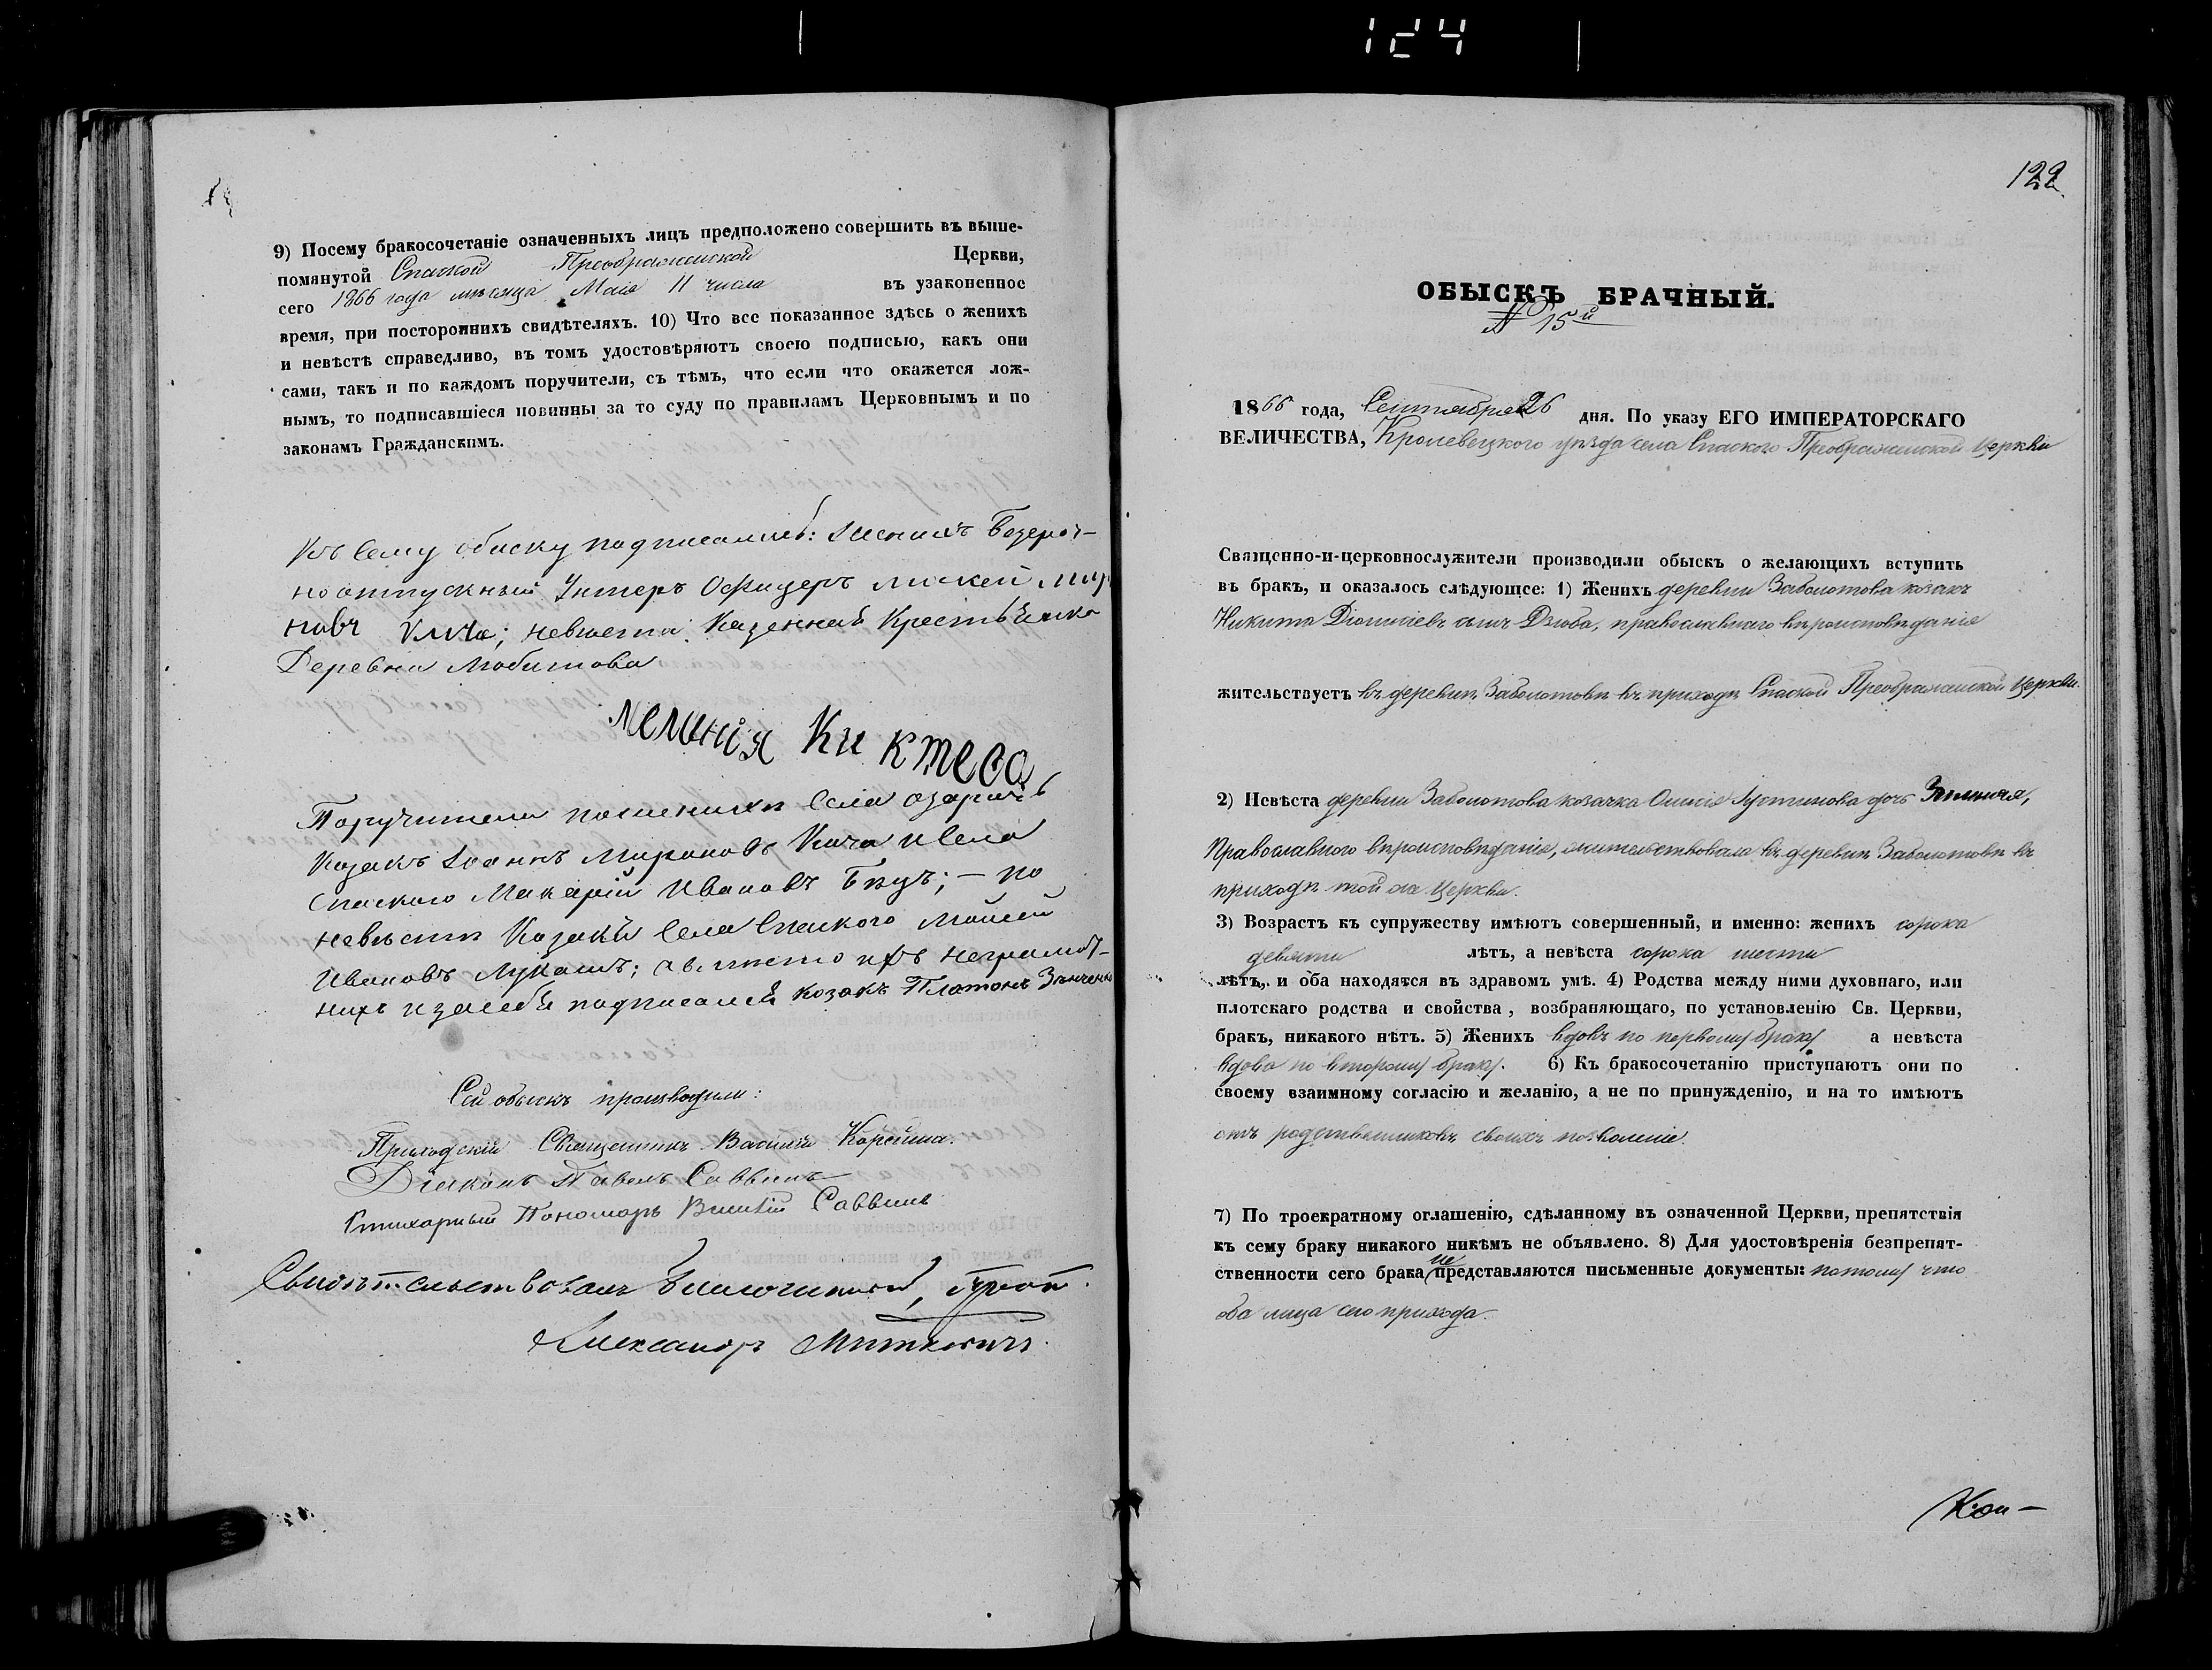 124
9) Посему бракосочетаніе означенныхъ лицъ предположено совершить въ выше-
помянутой Спаской Преображенской Церкви,
сего 1866 года мѣсяца Маія 11 числа въ узаконенное
время, при постороннихъ свидѣтеляхъ. 10) Что все показанное здѣсь о женихѣ
и невѣстѣ справедливо, въ томъ удостовѣряютъ своею подписью, какъ они
сами, такъ и по каждомъ поручители, съ тѣмъ, что если что окажется лож-
нымъ, то подписавшіеся повинны за то суду по правиламъ Церковнымъ и по
законамъ Гражданскимъ.
Къ сему обыску подписались: женихъ Безероч-
ноотпускный Унтеръ Офицеръ
невеста Казенная
Деревни Любитова
Поручители по женихѣ села Озаричъ
Козакъ Іоаннъ Мироновъ Кича и села
Спаского Макарій Ивановъ Бпуъ; – по
невѣсти Козакъ села Спаского Мойсей
Ивановъ Лукашъ; а вместо ихъ неграмот-
ныхъ и засебя подписался козакъ Платонъ
Сей обыскъ производили:
Приходскій Священникъ Василій Корейша.
Діаконъ Павелъ Саввинъ
Стихарный Пономарь Саввинъ
Свидѣтельствовалъ Благочинный,
Александръ Миткевичъ.
122
ОБЫСКЪ БРАЧНЫЙ.
№ 15й
1866 года, Сентября 26 дня. По указу ЕГО ИМПЕРАТОРСКАГО
ВЕЛИЧЕСТВА, Кролевецкого уѣзда села Спаского Преображенской Церкви
Священно-и-церковнослужители производили обыскъ о желающихъ вступить
въ бракъ, и оказалось слѣдующее: 1) Женихъ деревни Заболотова козакъ
Никита Діонисіевъ сынъ Дзюба, православнаго вѣроисповѣданія
жительствуетъ въ деревнѣ Заболотовѣ въ приходѣ Спаской Преображенской Церкви.
2) Невѣста деревни Заболотова козачка Устинова дочь
Православного вѣроисповѣданія, жительствовала въ деревнѣ Заболотовѣ въ
приходѣ той же Церкви.
3) Возрастъ къ супружеству имѣютъ совершенный, и именно: женихъ сорока
девяти лѣтъ, а невѣста сорока шести
лѣтъ, и оба находятся въ здравомъ умѣ. 4) Родства между ними духовнаго, или
плотскаго родства и свойства, возбраняющаго, по установленію Св. Церкви,
бракъ, никакого нѣтъ. 5) Женихъ вдовъ по первому браку а невѣста
вдова по второму браку. 6) Къ бракосочетанію приступаютъ они по
своему взаимному согласію и желанію, а не по принужденію, и на то имѣютъ
отъ родственниковъ своихъ позволеніе.
7) По троекратному оглашенію, сдѣланному въ означенной Церкви, препятствія
къ сему браку никакого никѣмъ не объявлено. 8) Для удостовѣренія безпрепят-
ственности сего брака не представляются письменные документы: потому что
оба лица сего прихода.